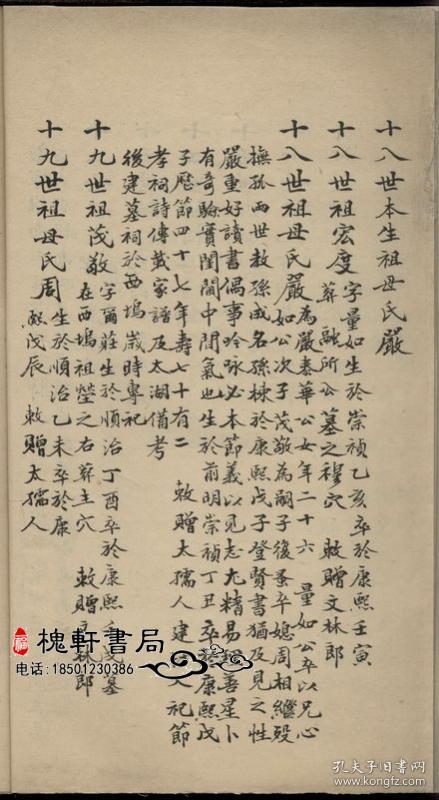 十八世本生祖母氏嚴
十八世祖宏度字量如生於崇禎乙亥卒於康熙壬寅
葬融所公墓之穆穴 敕贈文林郎
十八世祖母氏嚴為嚴春華公女年二十六 量如公卒以兄心
如公次子茂敬為嗣子後蚤卒媳周相繼歿
撫孫兩世教孫成名孫棟於康熙戊子登賢書猶及見之性
嚴重好讀書偶事吟咏必本節義以見志尤精易理善星卜
有奇驗實閨閣中間氣也生於前明崇禎丁丑卒 康熙戊
子歷節四十七年壽七十有二 敕贈太孺人建 入祀節
孝祠詩傳載家譜及太湖備考
後建墓祠於西塢歲時專祀
十九世祖茂敬字爾莊生於順治丁酉卒於康熙 戌墓
在西塢祖塋之右葬主穴 敕贈 林郎
十九世祖母氏周生於順治乙未卒於康
熙戊辰 敕贈太孺人
槐軒書局
电话:18501230386
孔夫子旧书网
www.kongfz.com